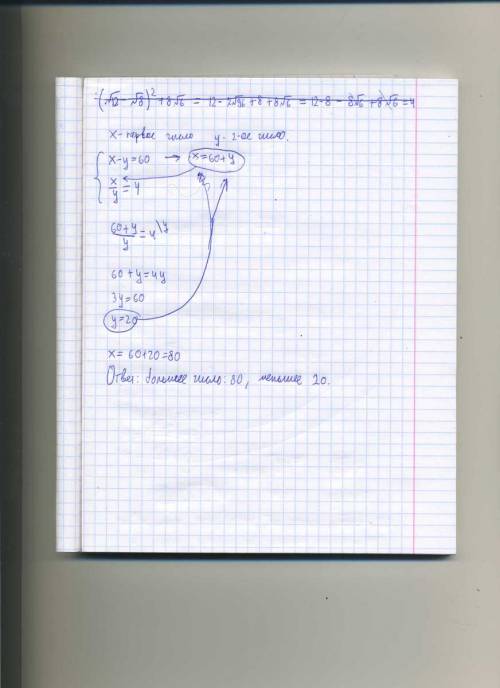 (√12 - √8)² + 8√6 = 12 - 2√96 + 8 + 8√6 = 12 + 8 - 8√6 + 8√6 = 4
x - первое число y - 2-ое число.
x-y=60 → x=60+y
x/y=4
60+y/y=4\y
60+y=4y
3y=60
y=20
x= 60+20=80
Ответ: большее число: 80, меньшее 20.